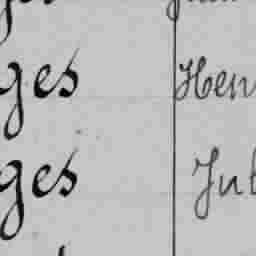 ges Hen
ges Jul